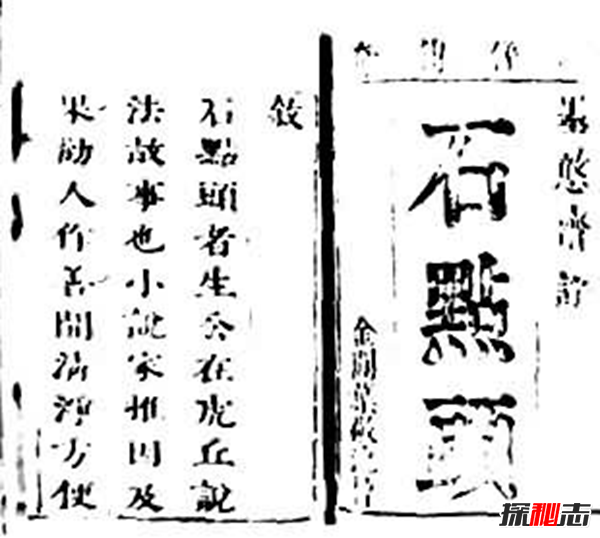 墨憨齋評
石點頭
金閶葉敬池梓
敘
石點頭者生公在虎丘說
法故事也小說家推因及
果勸人作善開清淨方便
探秘志